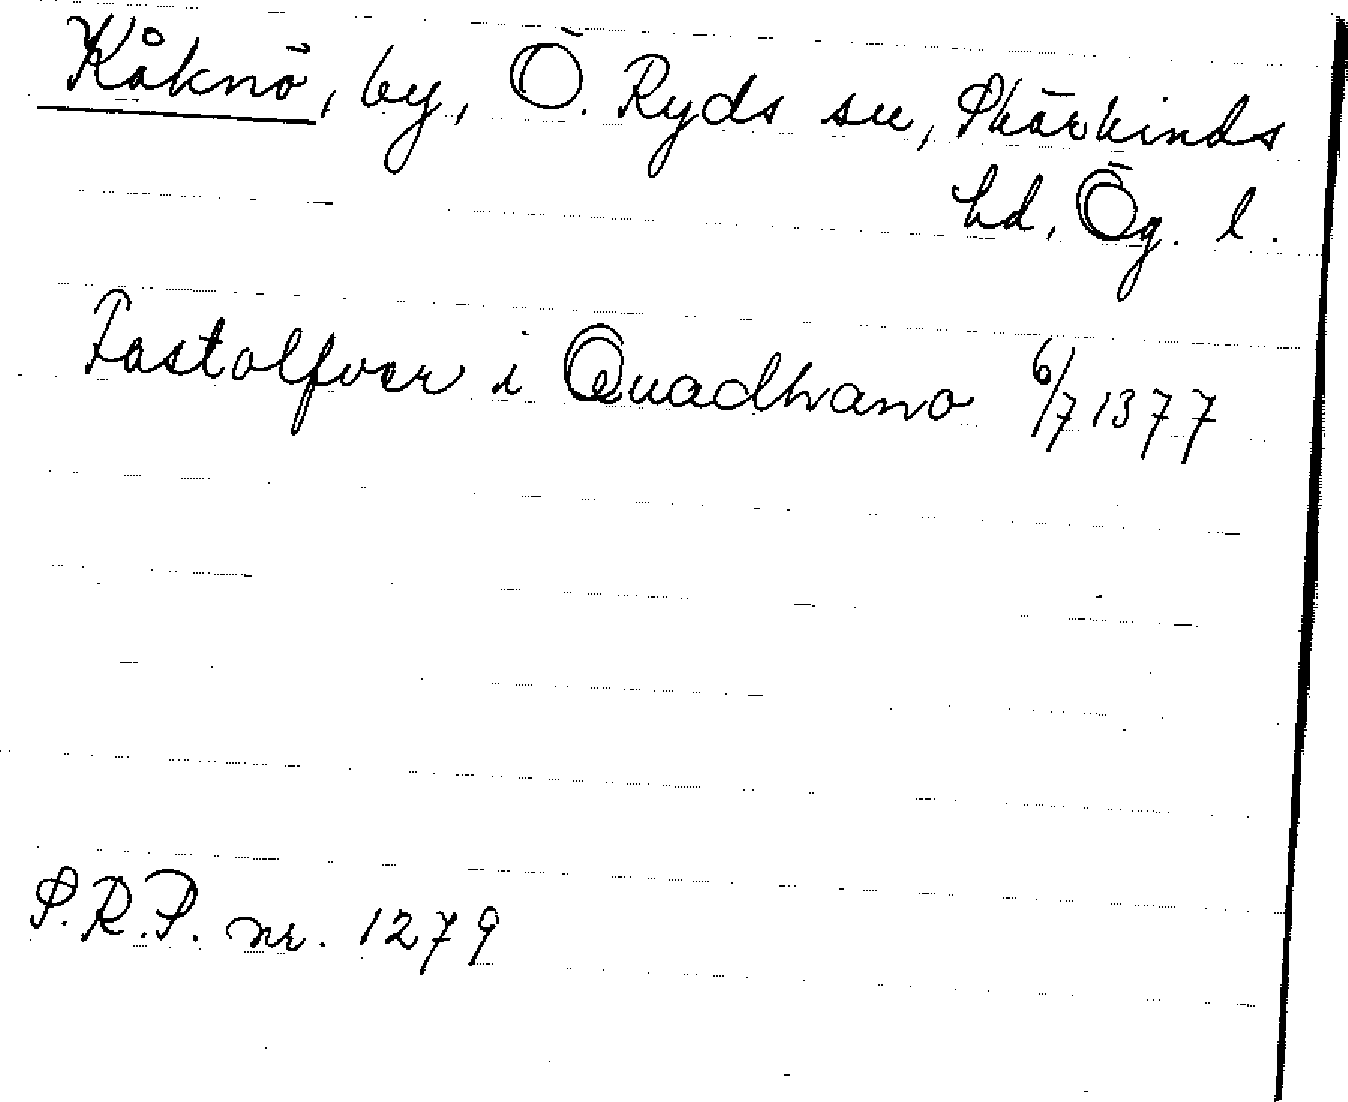 Kåknö, by, Ö. Ryds sn, Skärkinds
hd, Ög. l.
Fastolfver i Quadhano 6/7 1377
S.R.P. nr. 1279